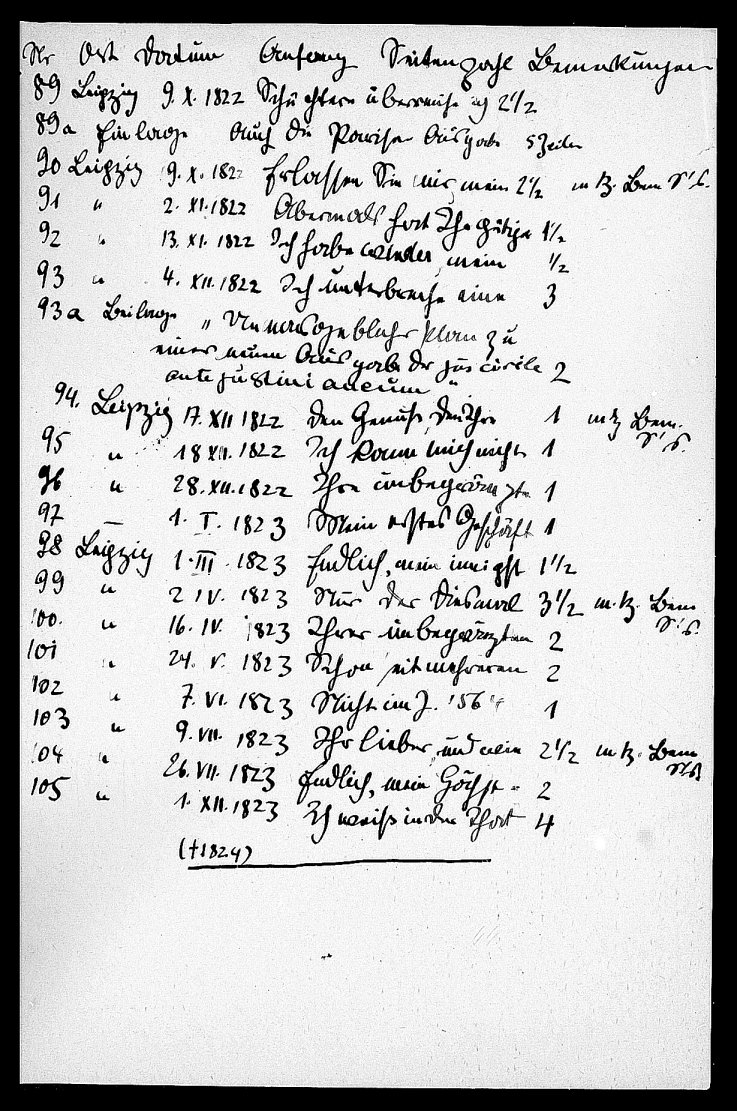 Nr Ort Datum Anfang Seitenzahl Bemerkungen
89 Leipzig 9. X. 1822 Schüchtern überreiche ich 2 1/2
89a Einlage Auch die Pariser Ausgabe 5 Zeilen
90 Leipzig 9. X. 1822 Erlassen Sie mir, mein 2 1/2 m. k. Bem S. S.
91 " 2. XI. 1822 Abermals hat Ihr gütige 1 1/2
92 " 13. XI. 1822 Ich habe wieder, mein 1/2
93 " 4. XII. 1822 Ich unterbreche eine 3
93a Beilage "Unmasgeblicher Plan zu
einer neuen Ausgabe der jus civile
antejustinianeum" 2
94. Leipzig 17. XII 1822 Den Genuß, den Ihre 1 m k Bem.
S. S.
95 " 18 XII. 1822 Ich kann mich nicht 1
96 " 28. XII. 1822 Ihre unbegränzte 1
97 — 1. I. 1823 Mein erstes Geschäft 1
98 Leipzig 1. III. 1823 Endlich, mein innigst 1 1/2
99 " 2 IV. 1823 Nur das Diesmal 3 1/2 m. k. Bem
S. S.
100. " 16. IV. 1823 Ihrer unbegränzten 2
101 " 24. V. 1823 Schon seit mehreren 2
102 " 7. VI. 1823 Nicht im J. '56" 1
103 " 9. VII. 1823 Ihr lieber, und mein 2 1/2 m k. Bem
S. S.
104 " 26. VII. 1823 Endlich, mein Höchst- 2
105 " 1. XII. 1823 Ich weiß in der That 4
(†1824)